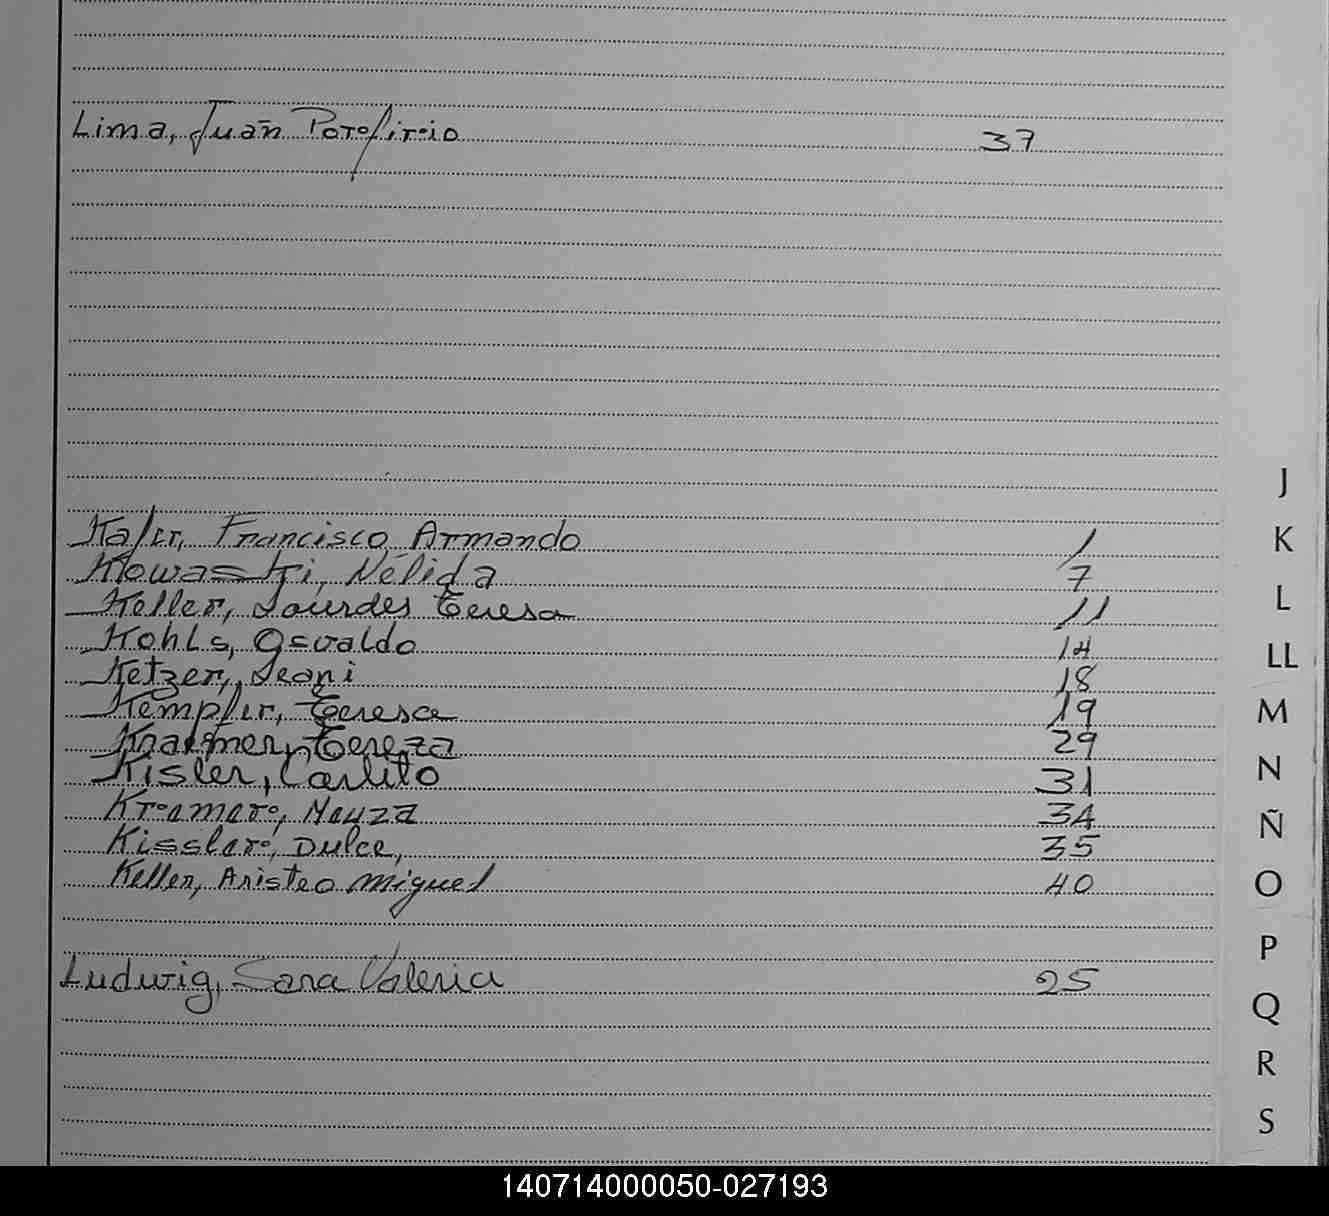 Lima, Juan Porofirio 37
Kafer, Francisco Armando 1
Kowaski, Nélida 7
Keller, Lourdes Teresa 11
Kohls, Osvaldo 14
Ketzer, Leoni 18
Kempfer, Teresa 19
Kraemer, Tereza 29
Kisler, Carlito 31
Kraemer, Neuza 34
Kissler, Dulce, 35
Keller, Aristeo Miguel 40
Ludwig, Sara Valeria 25
J
K
L
LL
M
N
Ñ
O
P
Q
R
S
140714000050-027193